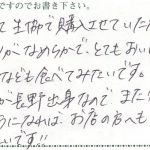 ですのでお書き下さい。
て生協で購入させていただ
がなめらかで、とてもおいし
なども食べてみたいです。
が長野出身なので また
うになれば お店の方へも
いです!!